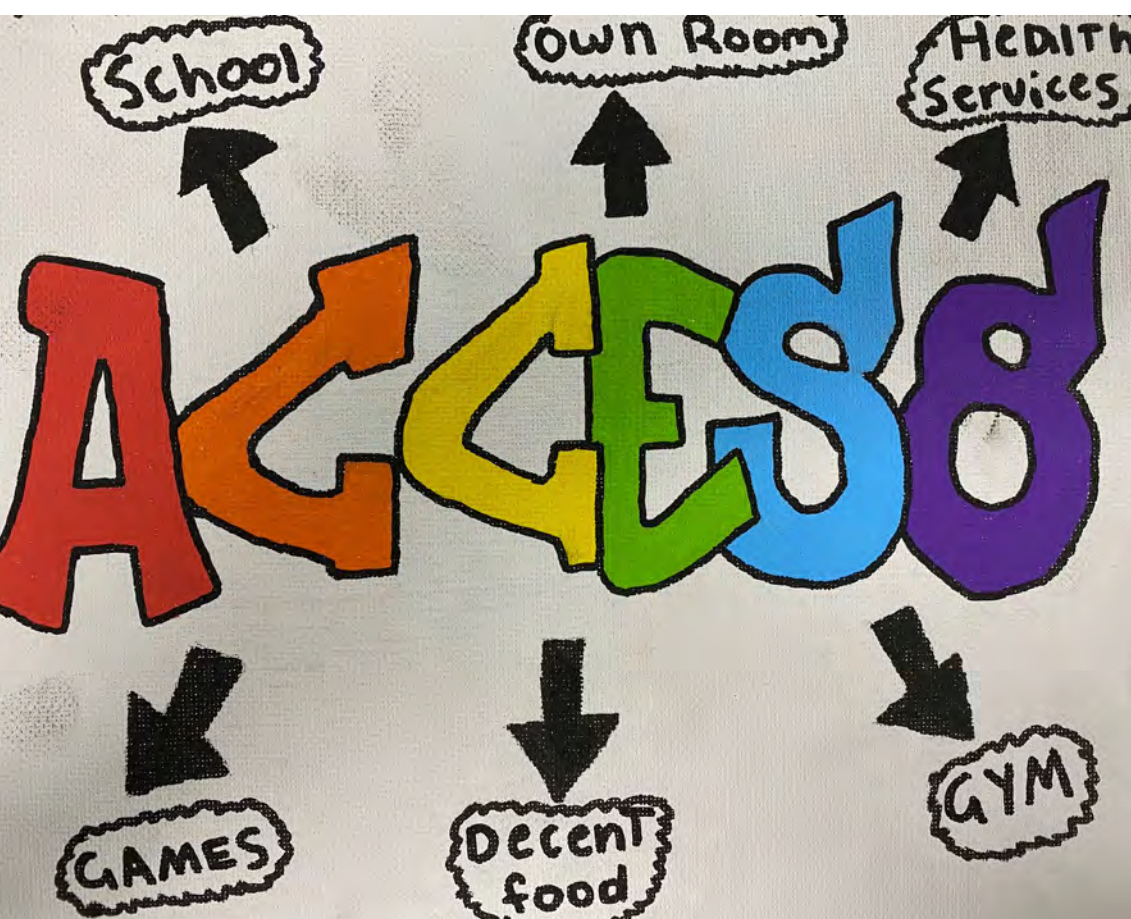 School
own Room
HEALTH
Services
ACCESS
GAMES
Decent
food
GYM